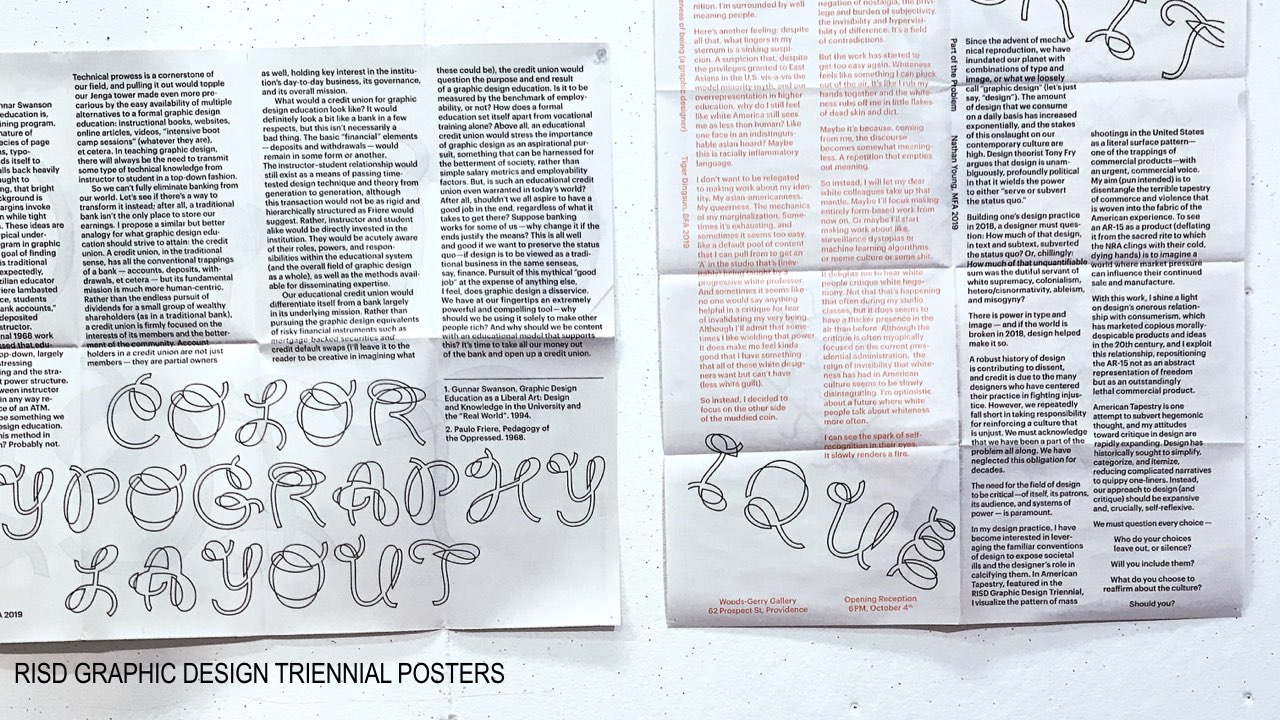 nnar Swanson
education is,
ining program.
nature of
ecies of page
s, typo-
ds itself to
lls back heavily
ught to
ng, that bright
ckground is
argins invoke
n while tight
s. These ideas are
pical under-
gram in graphic
goal of finding
is traditional
expectedly.
zilian educator
riere lambasted
ce, students
ank accounts,"
deposited
structor.
nal 1968 work
sed that edu-
op-down, largely
stressing
ng and the stra-
t power structure.
ween instructor
in any way re-
ce of an ATM.
be something we
design education.
his method in
n? Probably not.
A 2019
Technical prowess is a cornerstone of
our field, and pulling it out would topple
our Jenga tower made even more pre-
carious by the easy availability of multiple
alternatives to a formal graphic design
education: instructional books, websites,
online articles, videos, "intensive boot
camp sessions" (whatever they are),
et cetera. In teaching graphic design,
there will always be the need to transmit
some type of technical knowledge from
instructor to student in a top-down fashion.
So we can't fully eliminate banking from
our world. Let's see if there's a way to
transform it instead; after all, a traditional
bank isn't the only place to store our
earnings. I propose a similar but better
analogy for what graphic design edu-
cation should strive to attain: the credit
union. A credit union, in the traditional
sense, has all the conventional trappings
of a bank — accounts, deposits, with-
drawals, et cetera — but its fundamental
mission is much more human-centric.
Rather than the endless pursuit of
dividends for a small group of wealthy
shareholders (as in a traditional bank),
a credit union is firmly focused on the
interests of its members and the better-
ment of the community. Account
holders in a credit union are not just
members — they are partial owners
as well, holding key interest in the institu-
tion's day-to-day business, its governance,
and its overall mission.
What would a credit union for graphic
design education look like? It would
definitely look a bit like a bank in a few
respects, but this isn't necessarily a
bad thing. The basic "financial" elements
—deposits and withdrawals — would
remain in some form or another.
The instructor-student relationship would
still exist as a means of passing time-
tested design technique and theory from
generation to generation, although
this transaction would not be as rigid and
hierarchically structured as Friere would
suggest. Rather, instructor and student
alike would be directly invested in the
institution. They would be acutely aware
of their roles, powers, and respon-
sibilities within the educational system
(and the overall field of graphic design
as a whole), as well as the methods avail-
able for disseminating expertise.
Our educational credit union would
differentiate itself from a bank largely
in its underlying mission. Rather than
pursuing the graphic design equivalents
of risky financial instruments such as
mortgage backed securities and
credit default swaps (I'll leave it to the
reader to be creative in imagining what
these could be), the credit union would
question the purpose and end result
of a graphic design education. Is it to be
measured by the benchmark of employ-
ability, or not? How does a formal
education set itself apart from vocational
training alone? Above all, an educational
credit union would stress the importance
of graphic design as an aspirational pur-
suit, something that can be harnessed for
the betterment of society, rather than
simple salary metrics and employability
factors. But, is such an educational credit
union even warranted in today's world?
After all, shouldn't we all aspire to have a
good job in the end, regardless of what it
takes to get there? Suppose banking
works for some of us — why change it if the
ends justify the means? This is all well
and good if we want to preserve the status
quo—if design is to be viewed as a tradi-
tional business in the same senses,
say, finance. Pursuit of this mythical "good
job" at the expense of anything else,
I feel, does graphic design a disservice.
We have at our fingertips an extremely
powerful and compelling tool— why
should we be using it solely to make other
people rich? And why should we be content
with an educational model that supports
this? It's time to take all our money out
of the bank and open up a credit union.
1. Gunnar Swanson, Graphic Design
Education as a Liberal Art: Design
and Knowledge in the University and
the "Real World". 1994.
2. Paulo Friere, Pedagogy of
the Oppressed. 1968.
COLOR
YPOGRAPHY
LAYOUT
eness of being (a graphic designer)
Tiger Dingsun, BFA 2019
nition. I'm surrounded by well
meaning people.
Here's another feeling: despite
all that, what lingers in my
sternum is a sinking suspi-
cion. A suspicion that, despite
the privileges granted to East
Asians in the U.S. vis-a-vis the
model minority myth, and our
overrepresentation in higher
education, why do I still feel
like white America still sees
me as less than human? Like
one face in an indistinguis-
hable asian hoard? Maybe
this is racially inflammatory
language.
I don't want to be relegated
to making work about my iden-
tity. My asian-americanness.
My queerness. The mechanics
of my marginalization. Some-
times it's exhausting, and
sometimes it seems too easy,
like a default pool of content
that I can pull from to get an
'A' in the studio that's (inev-
itably) being taught by a
progressive white professor.
And sometimes it seems like
no one would say anything
helpful in a critique for fear
of invalidating my very being.
Although I'll admit that some-
times I like wielding that power.
It does make me feel kinda
good that I have something
that all of these white desig-
ners want but can't have
(less white guilt).
So instead, I decided to
focus on the other side
of the muddied coin.
negation of nostalgia, the privi-
lege and burden of subjectivity,
the invisibility and hypervisi-
bility of difference. It's a field
of contradictions.
But the work has started to
get too easy again. Whiteness
feels like something I can pluck
out of the air. It's like I rub my
hands together and the white-
ness rubs off me in little flakes
of dead skin and dirt.
Maybe it's because, coming
from me, the discourse
becomes somewhat meaning-
less. A repetition that empties
out meaning.
So instead, I will let my dear
white colleagues take up that
mantle. Maybe I'll focus making
entirely form-based work from
now on. Or maybe I'll start
making work about like,
surveillance dystopias or
machine learning algorithms
or meme culture or some shit.
It delights me to hear white
people critique white hege-
mony. Not that that's happening
that often during my studio
classes, but it does seems to
have a thicker presence in the
air than before. Although the
critique is often myopically
focused on the current pres-
idential administration, the
reign of invisibility that white-
ness has had in American
culture seems to be slowly
disintegrating. I'm optimistic
about a future where white
people talk about whiteness
more often.
I can see the spark of self-
recognition in their eyes.
It slowly renders a fire.
Woods-Gerry Gallery
62 Prospect St, Providence
Opening Reception
6PM, October 4th
Part of the Problem
Nathan Young, MFA 2019
Since the advent of mecha-
nical reproduction, we have
inundated our planet with
combinations of type and
image, or what we loosely
call "graphic design" (let's just
say, "design"). The amount
of design that we consume
on a daily basis has increased
exponentially, and the stakes
of this onslaught on our
contemporary culture are
high. Design theorist Tony Fry
argues that design is unam-
biguously, profoundly political
in that it wields the power
to either "serve or subvert
the status quo."
Building one's design practice
in 2018, a designer must ques-
tion: How much of that design,
in text and subtext, subverted
the status quo? Or, chillingly:
How much of that unquantifiable
sum was the dutiful servant of
white supremacy, colonialism,
hetero/cisnormativity, ableism,
and misogyny?
There is power in type and
image — and if the world is
broken in 2018, design helped
make it so.
A robust history of design
is contributing to dissent,
and credit is due to the many
designers who have centered
their practice in fighting injus-
tice. However, we repeatedly
fall short in taking responsibility
for reinforcing a culture that
is unjust. We must acknowledge
that we have been a part of the
problem all along. We have
neglected this obligation for
decades.
The need for the field of design
to be critical —of itself, its patrons,
its audience, and systems of
power — is paramount.
In my design practice, I have
become interested in lever-
aging the familiar conventions
of design to expose societal
ills and the designer's role in
calcifying them. In American
Tapestry, featured in the
RISD Graphic Design Triennial,
I visualize the pattern of mass
shootings in the United States
as a literal surface pattern—
one of the trappings of
commercial products—with
an urgent, commercial voice.
My aim (pun intended) is to
disentangle the terrible tapestry
of commerce and violence that
is woven into the fabric of the
American experience. To see
an AR-15 as a product (deflating
it from the sacred rite to which
the NRA clings with their cold,
dying hands) is to imagine a
world where market pressure
can influence their continued
sale and manufacture.
With this work, I shine a light
on design's onerous relation-
ship with consumerism, which
has marketed copious morally-
despicable products and ideas
in the 20th century, and I exploit
this relationship, repositioning
the AR-15 not as an abstract
representation of freedom
but as an outstandingly
lethal commercial product.
American Tapestry is one
attempt to subvert hegemonic
thought, and my attitudes
toward critique in design are
rapidly expanding. Design has
historically sought to simplify,
categorize, and itemize,
reducing complicated narratives
to quippy one-liners. Instead,
our approach to design (and
critique) should be expansive
and, crucially, self-reflexive.
We must question every choice —
Who do your choices
leave out, or silence?
Will you include them?
What do you choose to
reaffirm about the culture?
Should you?
RISD GRAPHIC DESIGN TRIENNIAL POSTERS